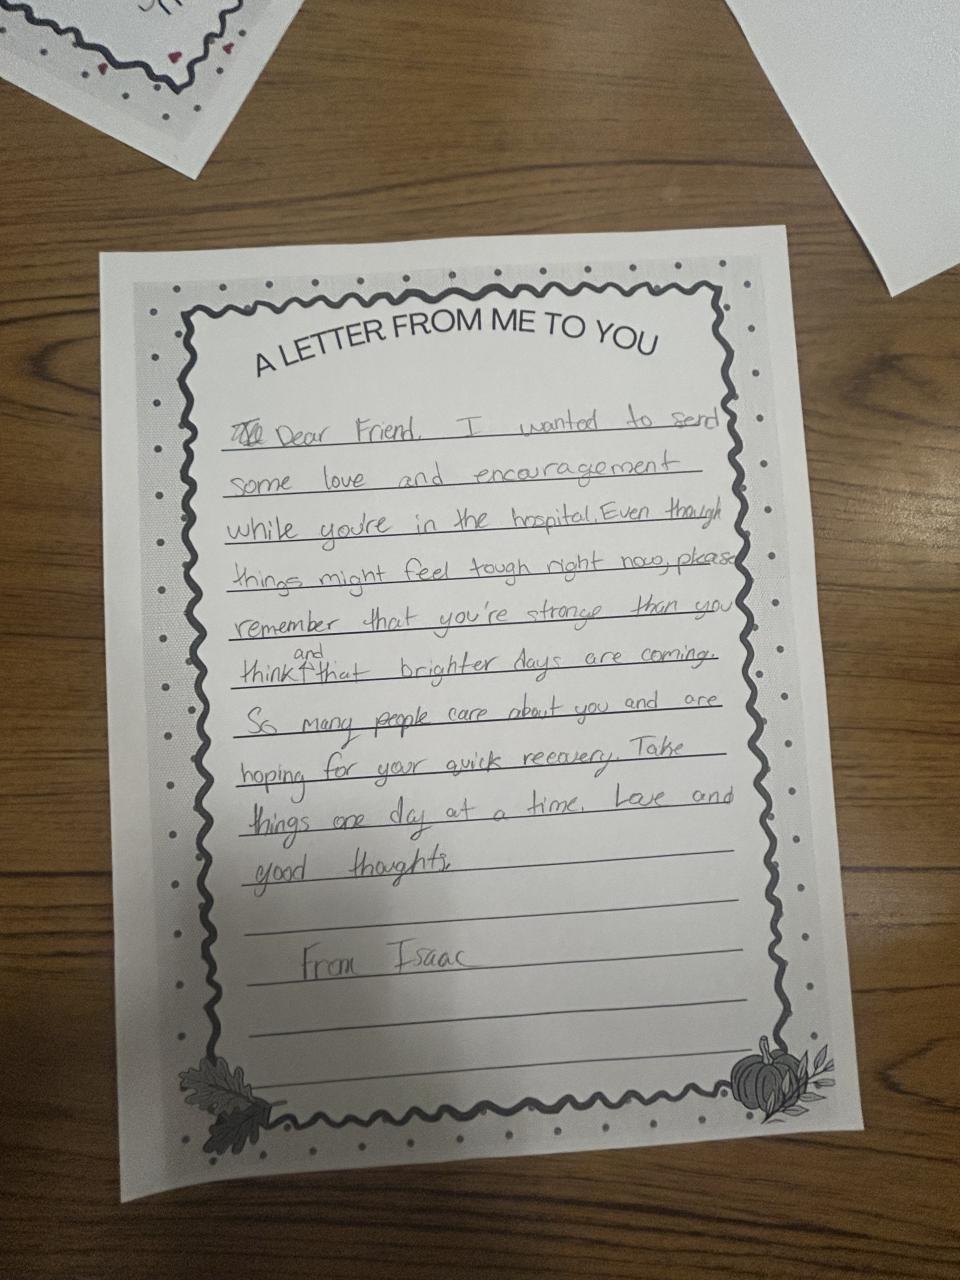 A LETTER FROM ME TO YOU
Dear Friend, I wanted to send
some love and encouragement
while you're in the hospital. Even though
things might feel tough right now, please
remember that you're stronge than you
and
think that brighter days are coming.
So many people care about you and are
hoping for your quick recovery. Take
things one day at a time. Love and
good thoughts,
From Isaac